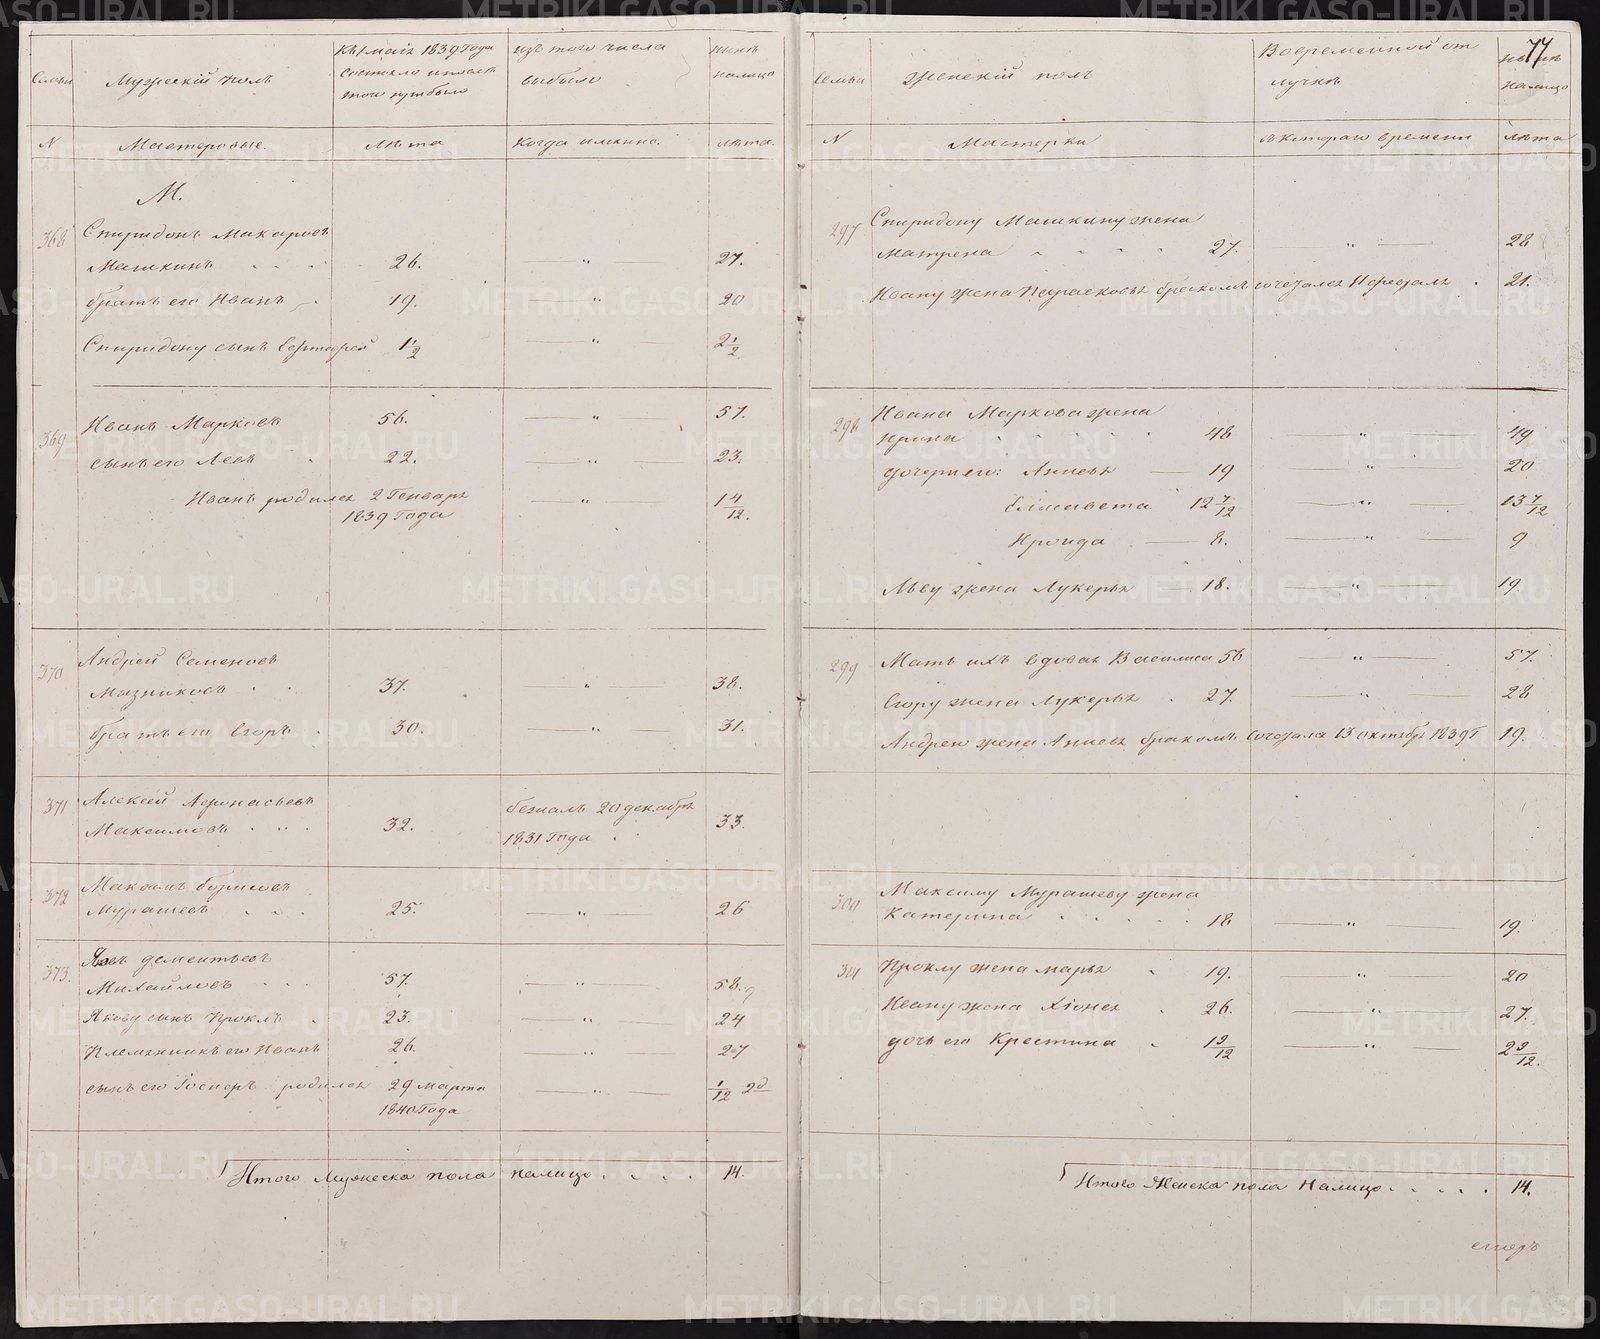 Семьи
Мужескій полъ
Къ 1 маія 1839 Года
состояло и послѣ
того прибыло
изъ того числа
выбыло
нынѣ
налицо
N
Мастеровые.
Лѣта
когда имянно.
лѣта.
М.
368
Спиридонъ Макаровъ
Машкинъ . . . 26. — " — 27.
братъ его Иванъ . 19. — " — 20
Спиридону сынъ 1 1/2 — " — 2 1/2
369
Иванъ Марковъ 56. — " — 57.
сынъ его Левъ . 22. — " — 23.
Иванъ родился 2 Генваря — " — 1 4/12.
1839 Года
370
Андрей Семеновъ
Мазниковъ . . 37. — " — 38.
братъ его Егоръ . 30. — " — 31.
371
Алексей Афонасьевъ
Максимовъ . . . 32.
бежалъ 20 декабря
1831 Года .
33.
372
Максимъ борисовъ
Мурашевъ . . . 25. — " — 26
373.
Яковъ дементьевъ
Михайловъ . . . 57. — " — 58.
Якову сынъ Проклъ . 23. — " — 24
Племянникъ его Иванъ 26. — " — 27
сынъ его родился 29 марта — " — 1/12
1840 Года
Итого Мужеска пола налицо . . . . 14.
77
Семьи
женскій полъ
Во временной от
лучкѣ
нынѣ
налицо
N
Мастерки
съ котораго времени
лѣта
297
Спиридону Машкину жена
матрена . . . . 27. — " — 28
Ивану жена Парасковья бракомъ сочеталась . 21.
298
Ивана Маркова жена
Ирина . . . . . 48 — " — 49
дочери его: Анисья — 19 — " — 20
Елисавета 12 7/12 — " — 13 7/12
Ироида — 8. — " — 9
Льву жена Лукерья — 18. — " — 19.
299
Мать ихъ вдова Василиса 56 — " — 57.
Егору жена Лукерья . 27. — " — 28
Андрею жена Анисья бракомъ сочеталась 13 октября 1839 Г 19.
300
Максиму Мурашеву жена
Катерина . . . . . 18. — " — 19.
301
Проклу жена марья . 19. — " — 20
Ивану жена Хіонея . 26. — " — 27.
дочь его Крестина . 1 9/12 — " — 2 9/12.
Итого Женска пола Налицо . . . . . 14.
METRIKI.GASO-URAL.RU